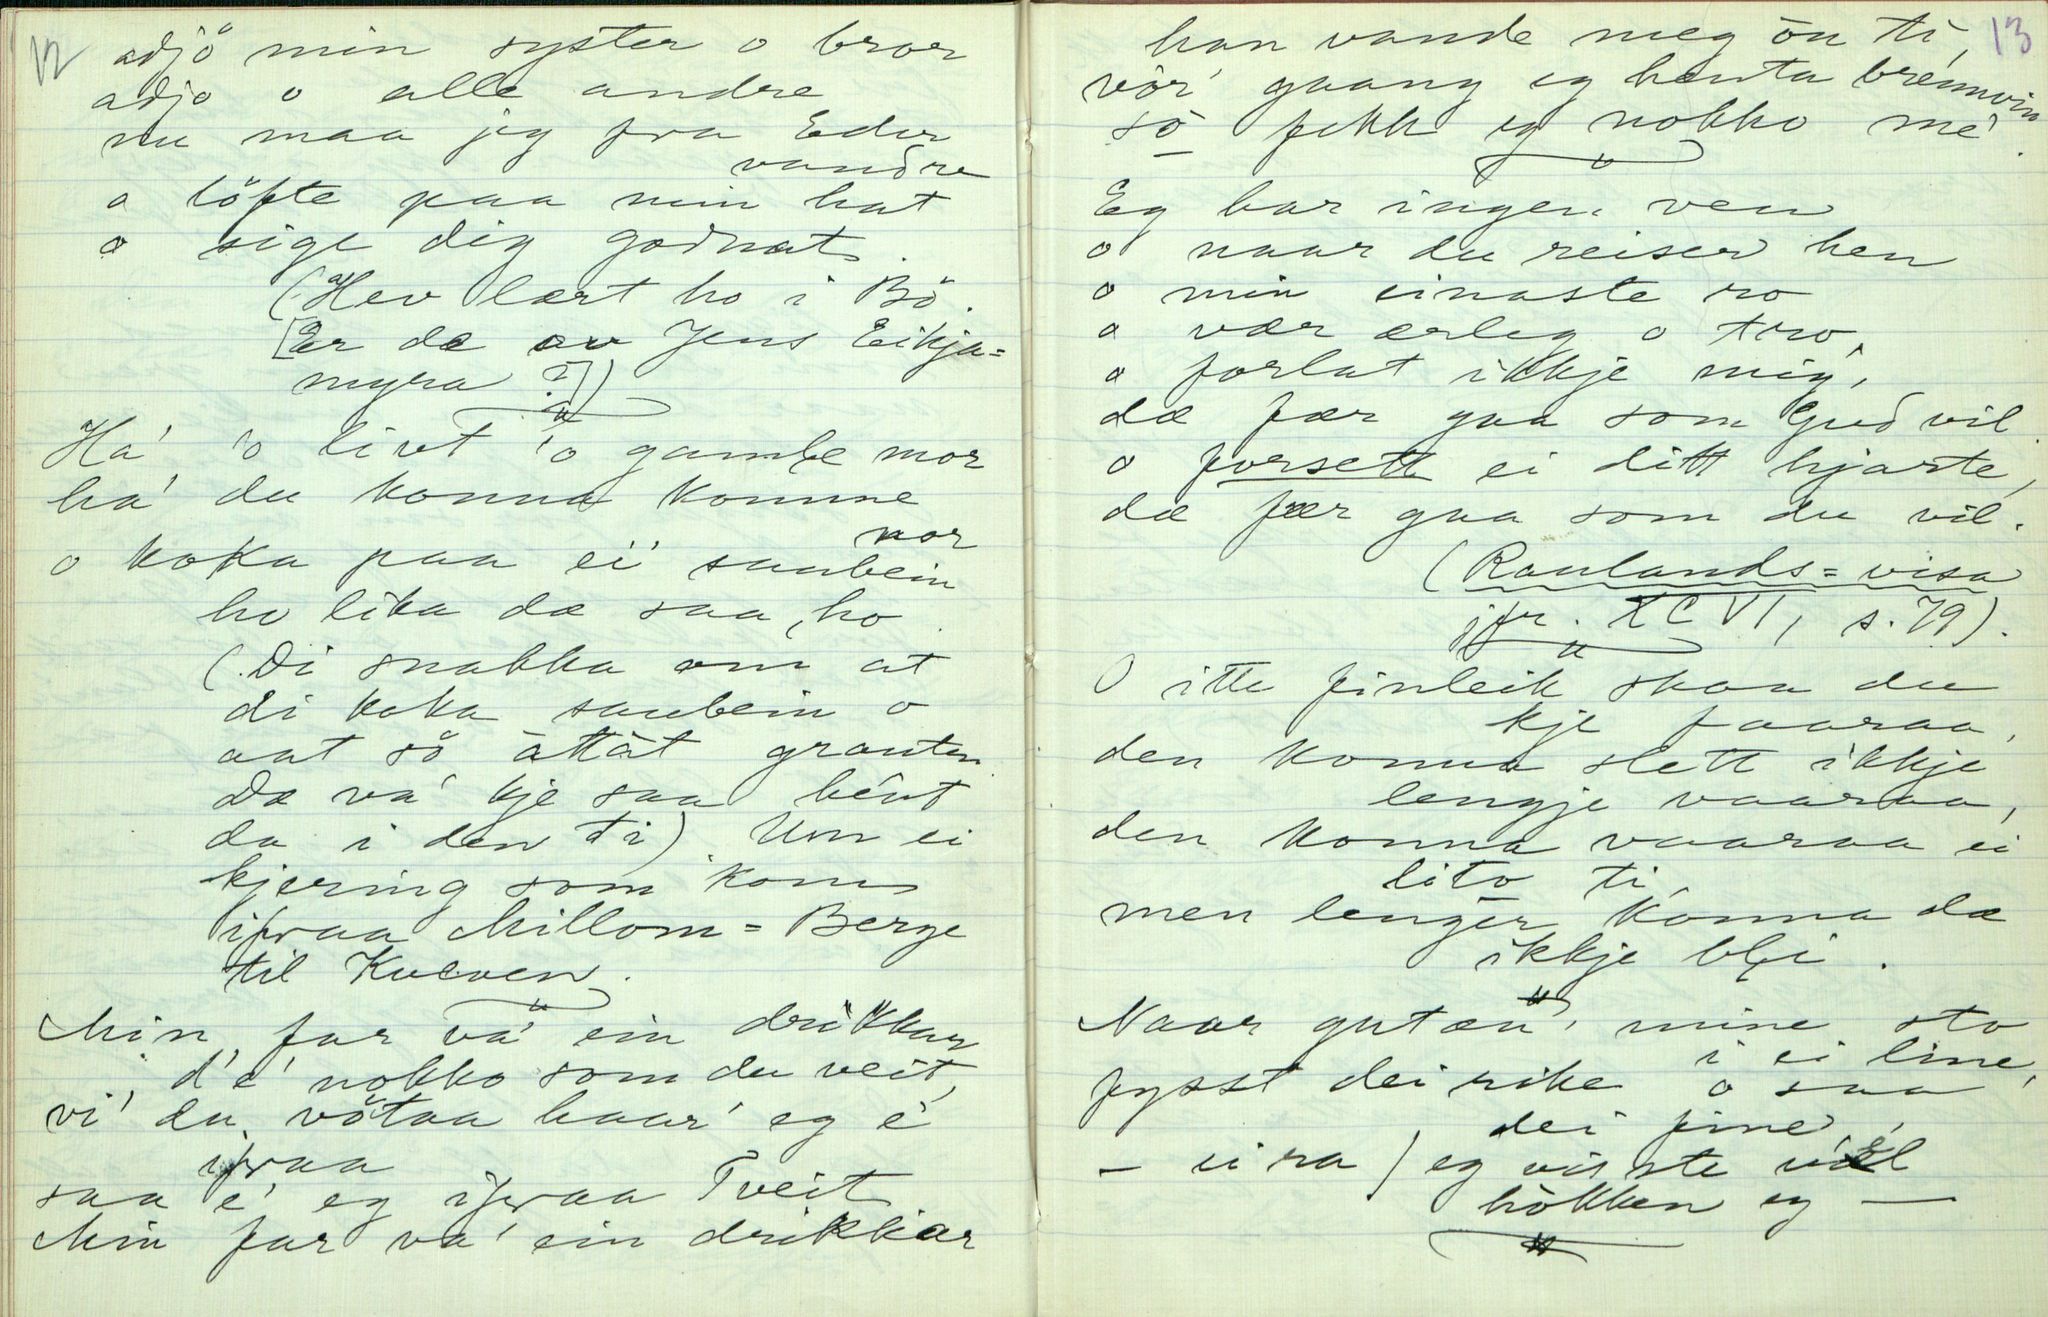 12
adjö min syster o bror
adjö o alle andre
nu maa jeg fra Eder
vandre
o löfte paa min hat
o sige dig godnat.
(Hev lært ho i Bö.
[Er de av Jens Eikja=
myra ?])
Há 'o livt 'o gamle mor
há' du konna komme
nor
o koka paa ei saubein
ho lika dæ saa, ho.
(Di snakka om at
di koka saubein o
aat sö àttàt grauten
Dæ va' kje saa béint
da i den ti). Um ei
kjering som kom
ifraa Millom=Berge
til Kvæven.
Min far va' ein drikkar
d'é' nokko som du veit,
vi' du vötaa haar' eg é'
ifraa
saa é' eg ifraa Tveit
Min far va' ein drikkar
13
han vande meg ön ti,
vör' gaang eg henta brennvin
sö fekk eg nokko me'.
Eg har ingen ven
o naar du reiser hen
o min einaste ro
o vær ærleg o tro,
o forlat ikkje mig,
dæ fær gaa som Gud vil.
o forsett ei ditt hjarte,
dæ fær gaa som du vil.
(Raulands=visa
jfr. XCVI, s. 79).
O itte finleik skaa du
kje faaraa,
den konna slett ikkje
lengje vaaraa,
den konna vaaraa ei
lito ti,
men lenger konna dæ
ikkje bli.
Naar gutæn' mine sto
i ei line,
fysst dei rike o saa
dei fine,
– ei ra) eg visste væl
hökken eg —